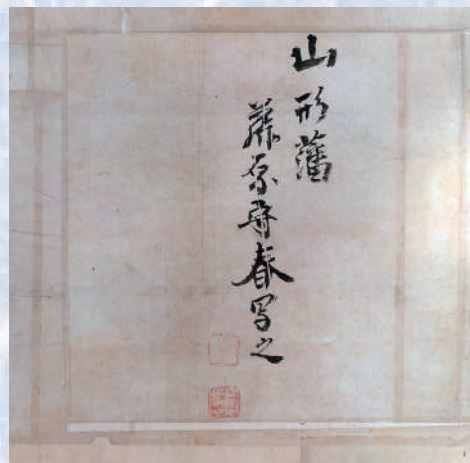 山形藩
藤原守春写之